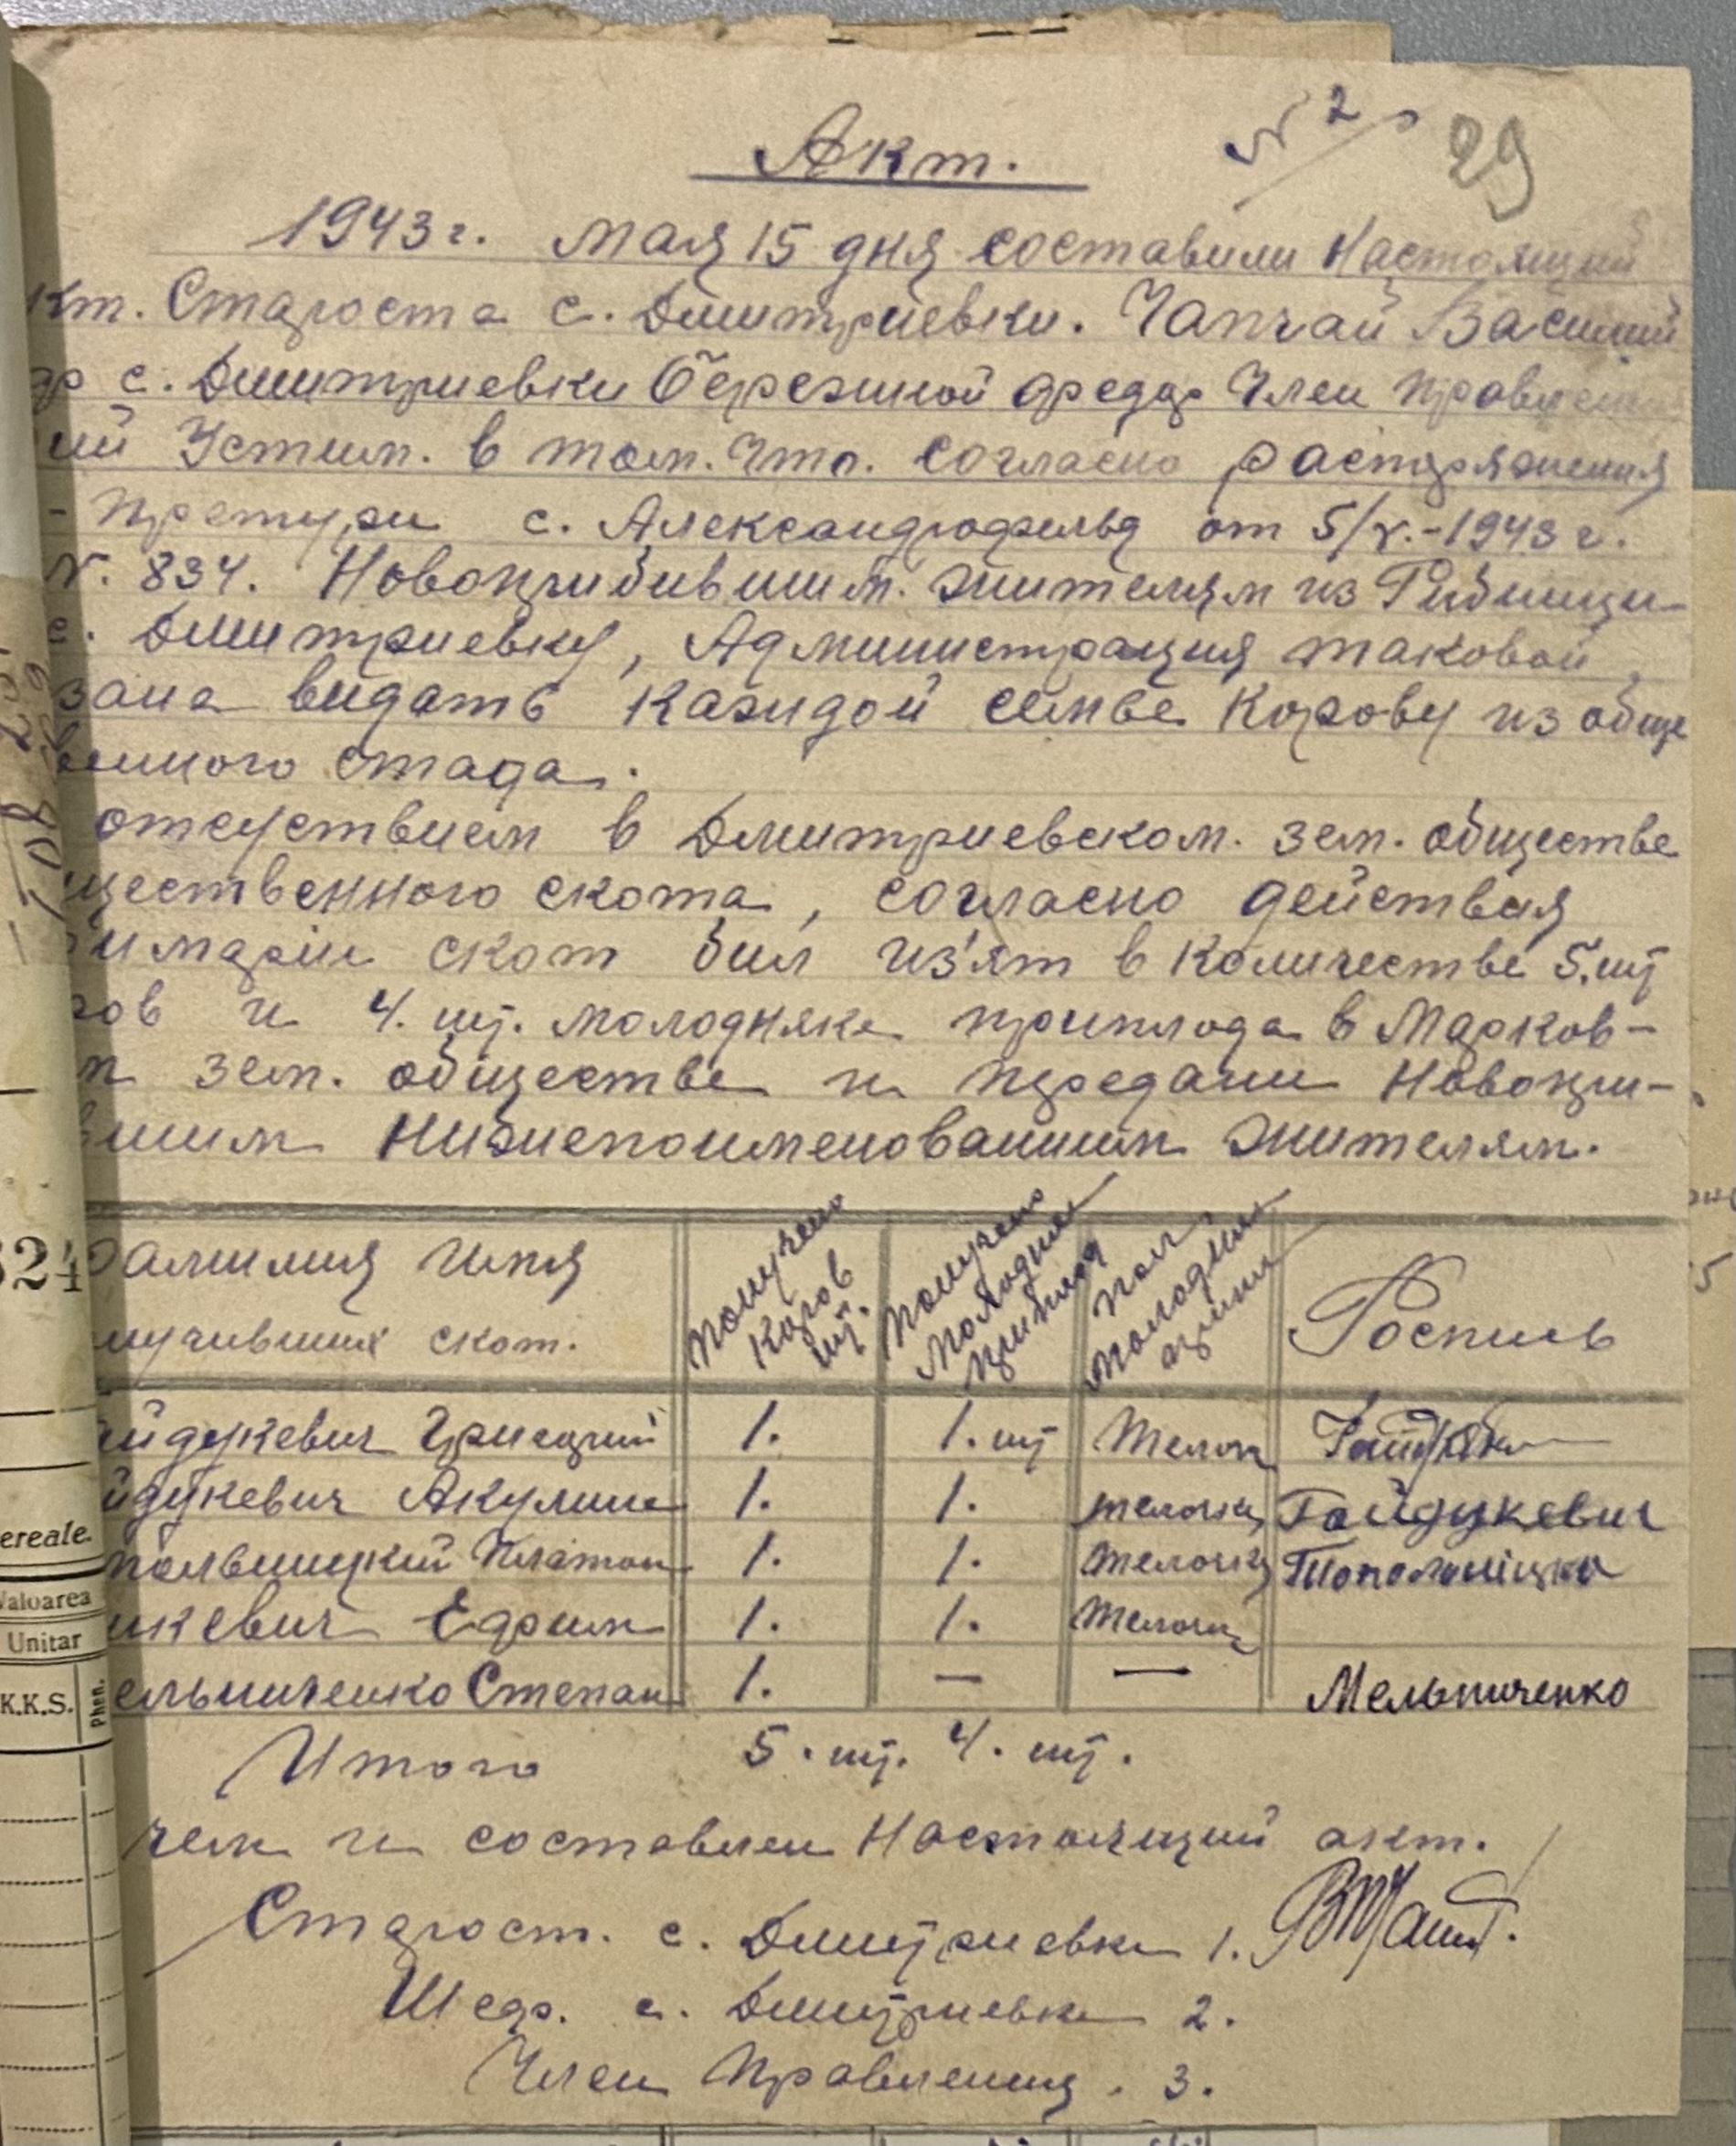 № 2
29
Акт.
1943 г. Мая 15 дня составили Настоящий
кт. Староста с. Дмитриевки. Чапчай Василий
др с. Дмитриевки Березной Федор Член Правлен
ий Устим. в том. Что. согласно распоряжения
- Претури с. Александрофельд от 5/V.-1943 г.
N. 834. Новоприбившим. жителям из Рибници
с. Дмитриевку, Администрация таковой
зана видать каждой семье корову из обще
венного стада.
отсуствием в Дмитриевском. зем. обществе
щественного скота, согласно действия
имарии скот бил из'ят в количестве 5. шт
ров и 4. шт. молодняка приплода в Марков-
м зем. обществе и передани Новопри-
вшим Нижепоименованим жителям.
Фамилия Имя
лучивших скот.
Получено Коров шт.
Получено Молодняка приплод
Пол молодняка
Роспись
айдукевич Григорий 1. 1. шт Телок
йдукевич Акулина 1. 1. телочка Гайдукевич
польницкий Платон 1. 1. Телочка Топольніцки
икевич Ефим 1. 1. Телочка
ельниченко Степан 1. — — Мельниченко
Итого 5. шт. 4. шт.
чем и составлен Настоящий акт.
Старост. с. Дмитриевки 1.
Шеф. с. Дмитриевки 2.
Член Правления. 3.
324
ereale.
Valoarea
Unitar
K.K.S.
Phen.